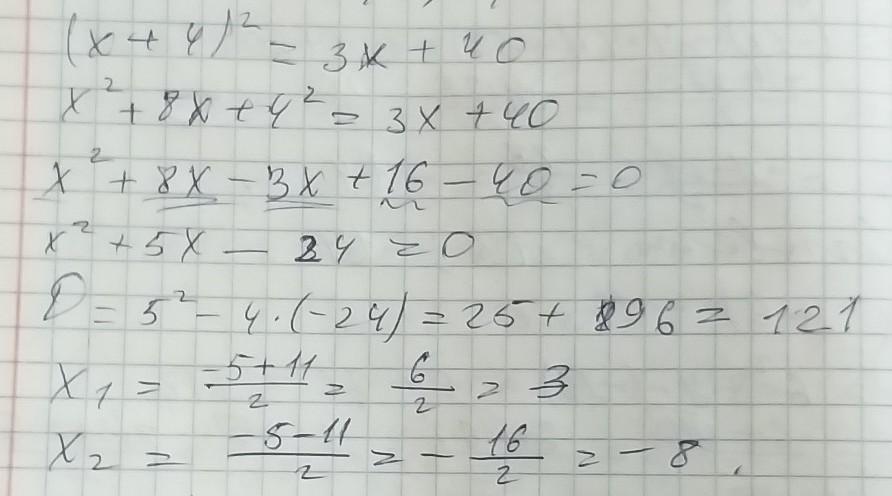 (x + 4)² = 3x + 40
x² + 8x + 4² = 3x + 40
x² + 8x - 3x + 16 - 40 = 0
x² + 5x - 24 = 0
D = 5² - 4 · (-24) = 25 + 96 = 121
x₁ = (-5+11)/2 = 6/2 = 3
x₂ = (-5-11)/2 = -16/2 = -8.